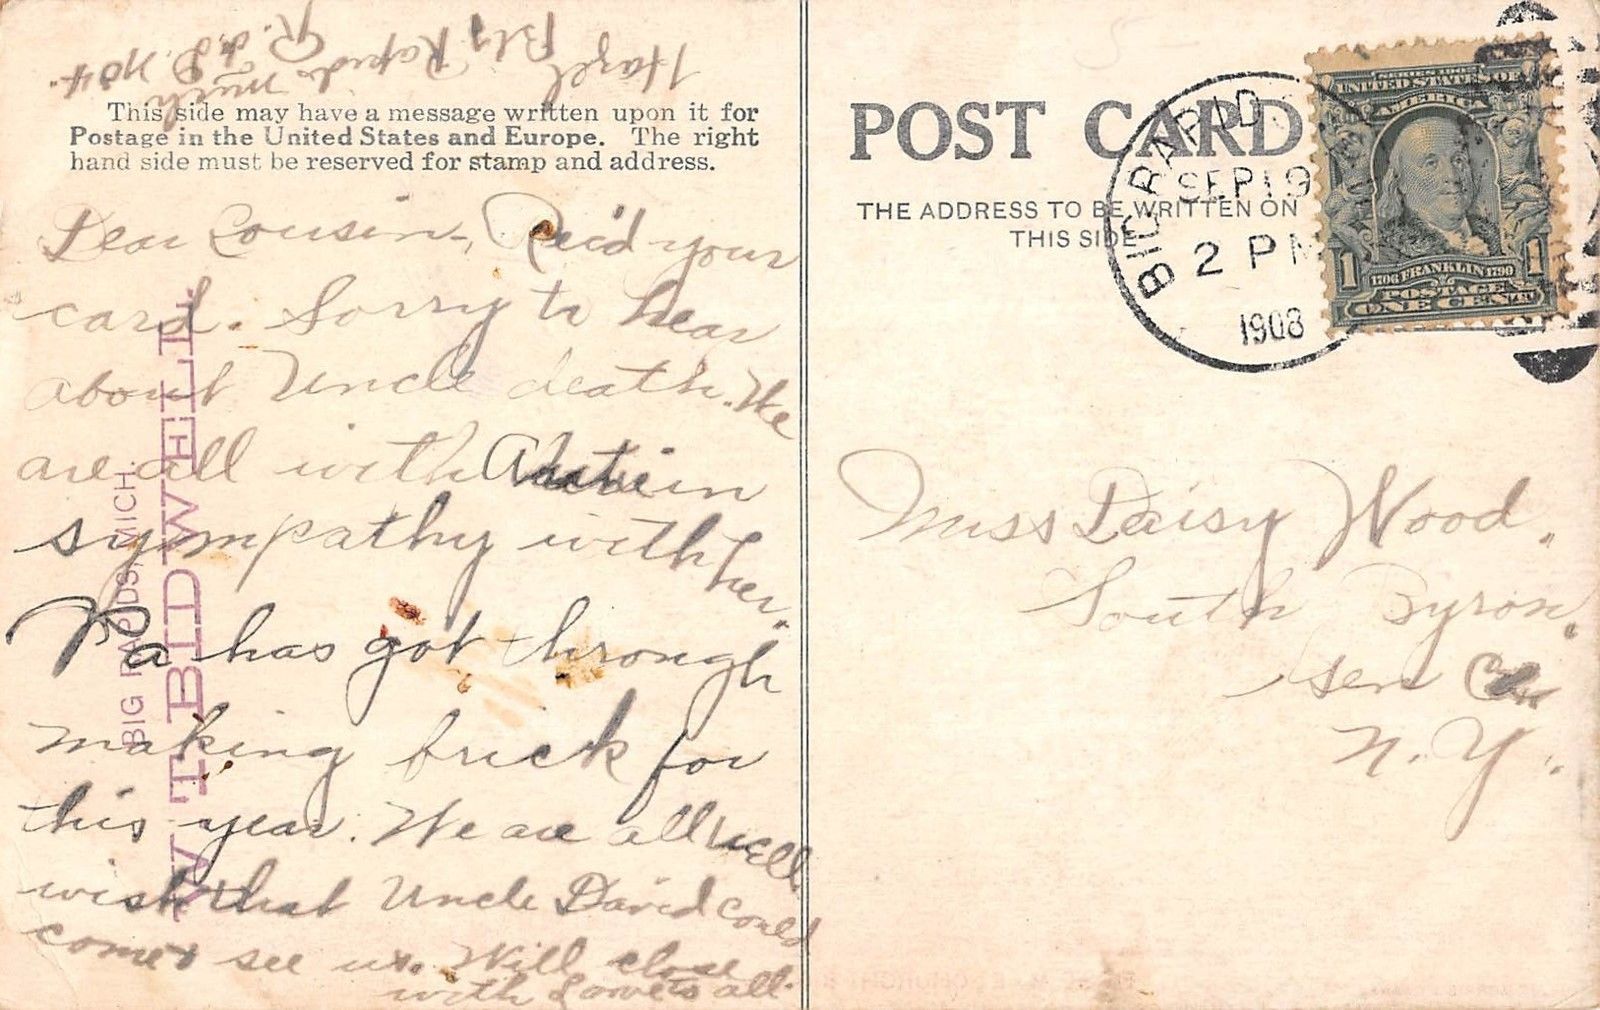 Hazel
Big Rapids
Mich
R.F.D. No 4.
This side may have a message written upon it for
Postage in the United States and Europe. The right
hand side must be reserved for stamp and address.
Dear Cousin, Rec'd your
card. Sorry to hear
about Uncle death. We
are all with in
sympathy with her.
Pa has got through
making brick for
this year. We are all well
wish that Uncle David could
come & see us. Will close
with Love to all.
W. T. BIDWELL,
BIG RAPIDS, MICH.
POST CARD
THE ADDRESS TO BE WRITTEN ON
THIS SIDE
BIG RAPID
SEP 19
2 PM
1908
UNITED STATES OF
AMERICA
1 1706 FRANKLIN 1790 1
POSTAGE
ONE CENT
Miss Daisy Wood.
South Byron.
Gen Co
N.Y.